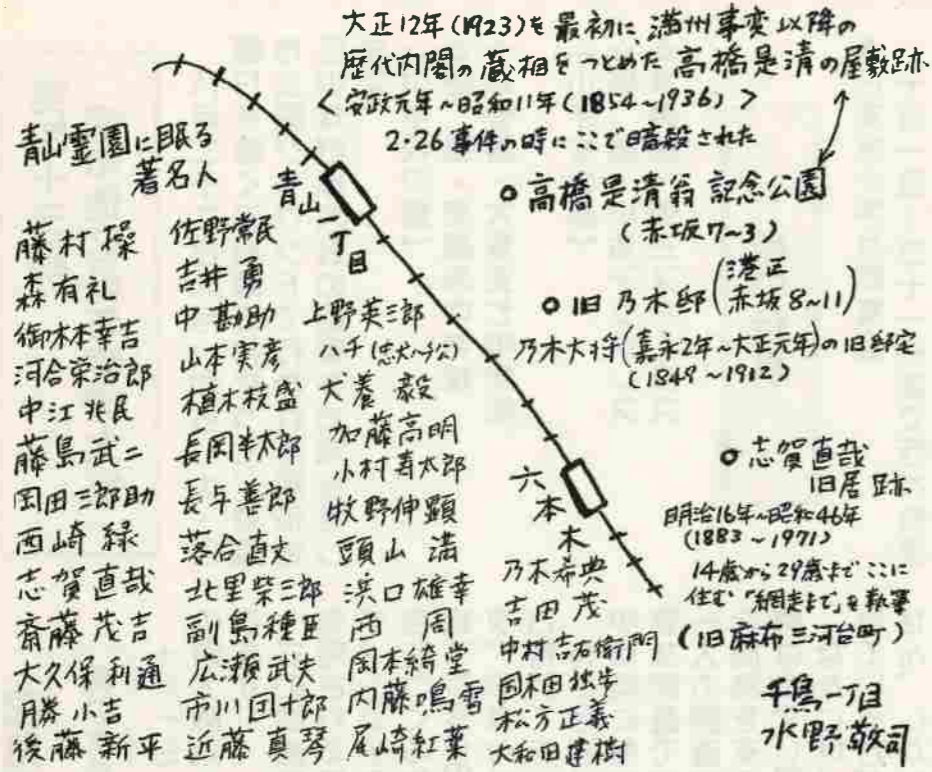 大正12年(1923)を最初に、満州事変以降の
歴代内閣の蔵相をつとめた高橋是清の屋敷跡
<安政元年~昭和11年(1854~1936)>
2・26事件の時にここで暗殺された
○高橋是清翁記念公園
(赤坂7~3)
○旧乃木邸(港正 赤坂8~11)
乃木大将(嘉永2年~大正元年)の旧邸宅
(1849~1912)
○志賀直哉
旧居跡
明治16年~昭和46年
(1883~1971)
14歳から29歳までここに
住む「網走まで」を執筆
(旧麻布三河台町)
青山一丁目
六本木
青山霊園に眠る
著名人
藤村操
森有礼
御木本幸吉
河合栄治郎
中江兆民
藤島武二
岡田三郎助
西崎緑
志賀直哉
斎藤茂吉
大久保利通
勝小吉
後藤新平
佐野常民
吉井勇
中勘助
山本実彦
植木枝盛
長岡半太郎
長与善郎
落合直文
北里柴三郎
副島種臣
広瀬武夫
市川団十郎
近藤真琴
上野英三郎
ハチ(忠犬ハチ公)
犬養毅
加藤高明
小村寿太郎
牧野伸顕
頭山満
浜口雄幸
西周
岡本綺堂
内藤鳴雪
尾崎紅葉
乃木希典
吉田茂
中村吉右衛門
国木田独歩
松方正義
大和田建樹
千鳥一丁目
水野敬司